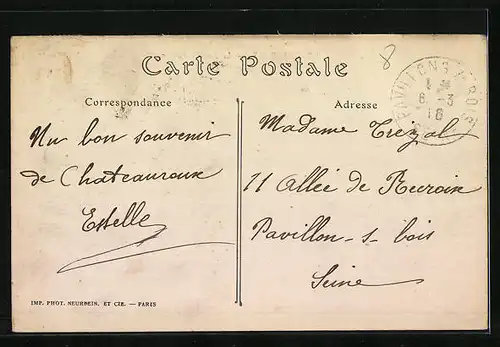 Carte Postale
8
PAVILLONS S/BOIS
8 -3
16
Correspondance
Adresse
Un bon souvenir
de Chateauroux
Estelle
Madame Trézal
11 Allée de Rocroix
Pavillon-s-bois
Seine
IMP. PHOT. NEURDEIN. ET CIE. — PARIS